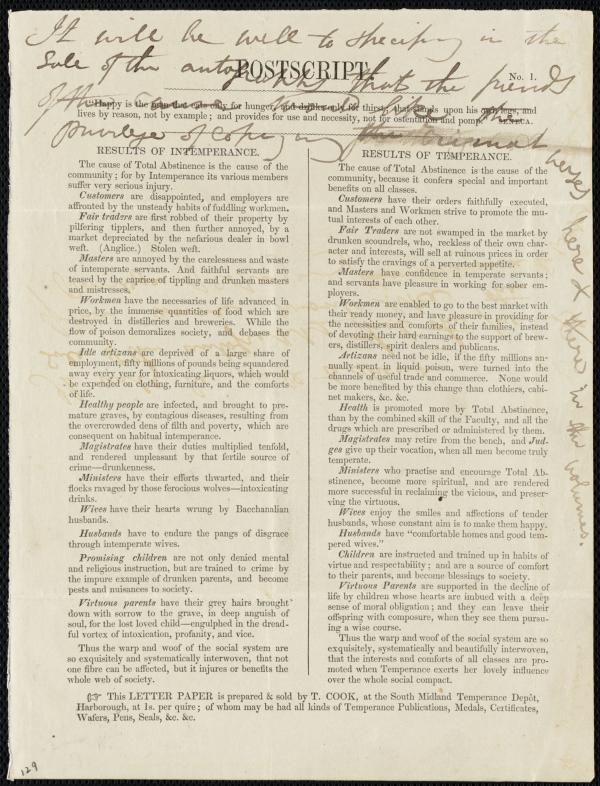 It will be well to specify in the
Sale of the autographs that the friends
of the
privilege of copying the original
verses here & there in the volumes.
POSTSCRIPT.
No. 1.
"Happy is the man that eats only for hunger, and drinks only for thirst; that stands upon his own legs, and
lives by reason, not by example; and provides for use and necessity, not for ostentation and pomp." SENECA.
RESULTS OF INTEMPERANCE.
The cause of Total Abstinence is the cause of the
community; for by Intemperance its various members
suffer very serious injury.
Customers are disappointed, and employers are
affronted by the unsteady habits of fuddling workmen.
Fair traders are first robbed of their property by
pilfering tipplers, and then further annoyed, by a
market depreciated by the nefarious dealer in bowl
weft. (Anglice.) Stolen weft.
Masters are annoyed by the carelessness and waste
of intemperate servants. And faithful servants are
teased by the caprice of tippling and drunken masters
and mistresses.
Workmen have the necessaries of life advanced in
price, by the immense quantities of food which are
destroyed in distilleries and breweries. While the
flow of poison demoralizes society, and debases the
community.
Idle artizans are deprived of a large share of
employment, fifty millions of pounds being squandered
away every year for intoxicating liquors, which would
be expended on clothing, furniture, and the comforts
of life.
Healthy people are infected, and brought to pre-
mature graves, by contagious diseases, resulting from
the overcrowded dens of filth and poverty, which are
consequent on habitual intemperance.
Magistrates have their duties multiplied tenfold,
and rendered unpleasant by that fertile source of
crime—drunkenness.
Ministers have their efforts thwarted, and their
flocks ravaged by those ferocious wolves—intoxicating
drinks.
Wives have their hearts wrung by Bacchanalian
husbands.
Husbands have to endure the pangs of disgrace
through intemperate wives.
Promising children are not only denied mental
and religious instruction, but are trained to crime by
the impure example of drunken parents, and become
pests and nuisances to society.
Virtuous parents have their grey hairs brought
down with sorrow to the grave, in deep anguish of
soul, for the lost loved child—engulphed in the dread-
ful vortex of intoxication, profanity, and vice.
Thus the warp and woof of the social system are
so exquisitely and systematically interwoven, that not
one fibre can be affected, but it injures or benefits the
whole web of society.
RESULTS OF TEMPERANCE.
The cause of Total Abstinence is the cause of the
community, because it confers special and important
benefits on all classes.
Customers have their orders faithfully executed,
and Masters and Workmen strive to promote the mu-
tual interests of each other.
Fair Traders are not swamped in the market by
drunken scoundrels, who, reckless of their own char-
acter and interests, will sell at ruinous prices in order
to satisfy the cravings of a perverted appetite.
Masters have confidence in temperate servants;
and servants have pleasure in working for sober em-
ployers.
Workmen are enabled to go to the best market with
their ready money, and have pleasure in providing for
the necessities and comforts of their families, instead
of devoting their hard earnings to the support of brew-
ers, distillers, spirit dealers and publicans.
Artizans need not be idle, if the fifty millions an-
nually spent in liquid poison, were turned into the
channels of useful trade and commerce. None would
be more benefited by this change than clothiers, cabi-
net makers, &c. &c.
Health is promoted more by Total Abstinence,
than by the combined skill of the Faculty, and all the
drugs which are prescribed or administered by them.
Magistrates may retire from the bench, and Jud-
ges give up their vocation, when all men become truly
temperate.
Ministers who practise and encourage Total Ab-
stinence, become more spiritual, and are rendered
more successful in reclaiming the vicious, and preser-
ving the virtuous.
Wives enjoy the smiles and affections of tender
husbands, whose constant aim is to make them happy.
Husbands have "comfortable homes and good tem-
pered wives."
Children are instructed and trained up in habits of
virtue and respectability; and are a source of comfort
to their parents, and become blessings to society.
Virtuous Parents are supported in the decline of
life by children whose hearts are imbued with a deep
sense of moral obligation; and they can leave their
offspring with composure, when they see them pursu-
ing a wise course.
Thus the warp and woof of the social system are so
exquisitely, systematically and beautifully interwoven,
that the interests and comforts of all classes are pro-
moted when Temperance exerts her lovely influence
over the whole social compact.
☞ This LETTER PAPER is prepared & sold by T. COOK, at the South Midland Temperance Depôt,
Harborough, at 1s. per quire; of whom may be had all kinds of Temperance Publications, Medals, Certificates,
Wafers, Pens, Seals, &c. &c.
129